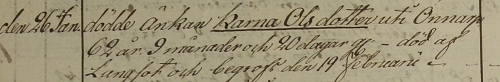 den 26 Jan. dödde Änkan Karna Olsdotter uti Onnarp
62 år 9 månader och 20 dagar g. – död af
Lungsot och begrofs den 19 Februarii –